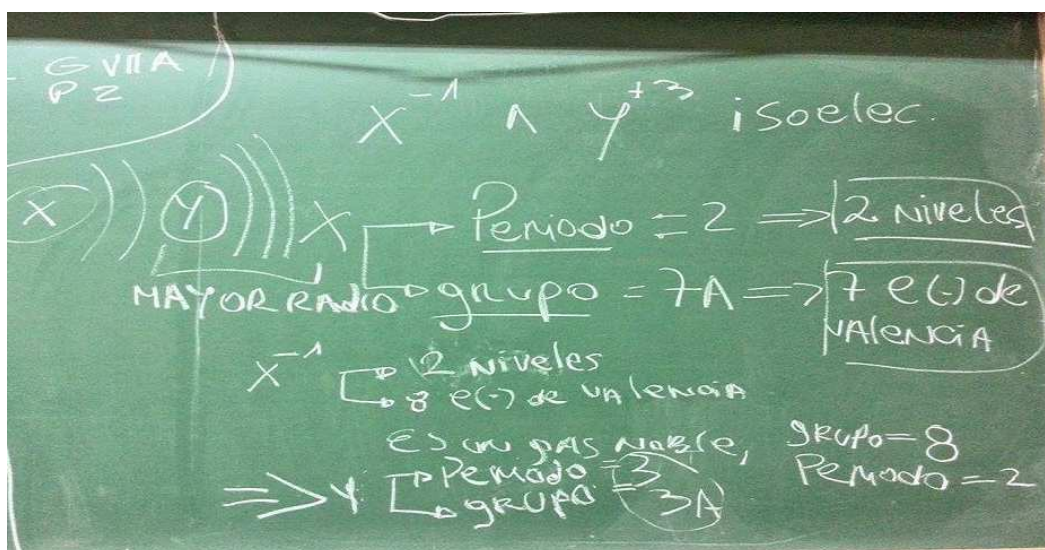 G VIIA
P 2
X⁻¹ ∧ Y⁺³ isoelec.
X Y X Periodo = 2 => 2 Niveles
MAYOR RADIO grupo = 7A => 7 e(-) de
VAlENCiA
X⁻¹ 2 Niveles
8 e(-) de VAlENCiA
ES un gas NOBle, gRUPO = 8
=> Y Periodo = 3 Periodo = 2
gRUPO = 3A